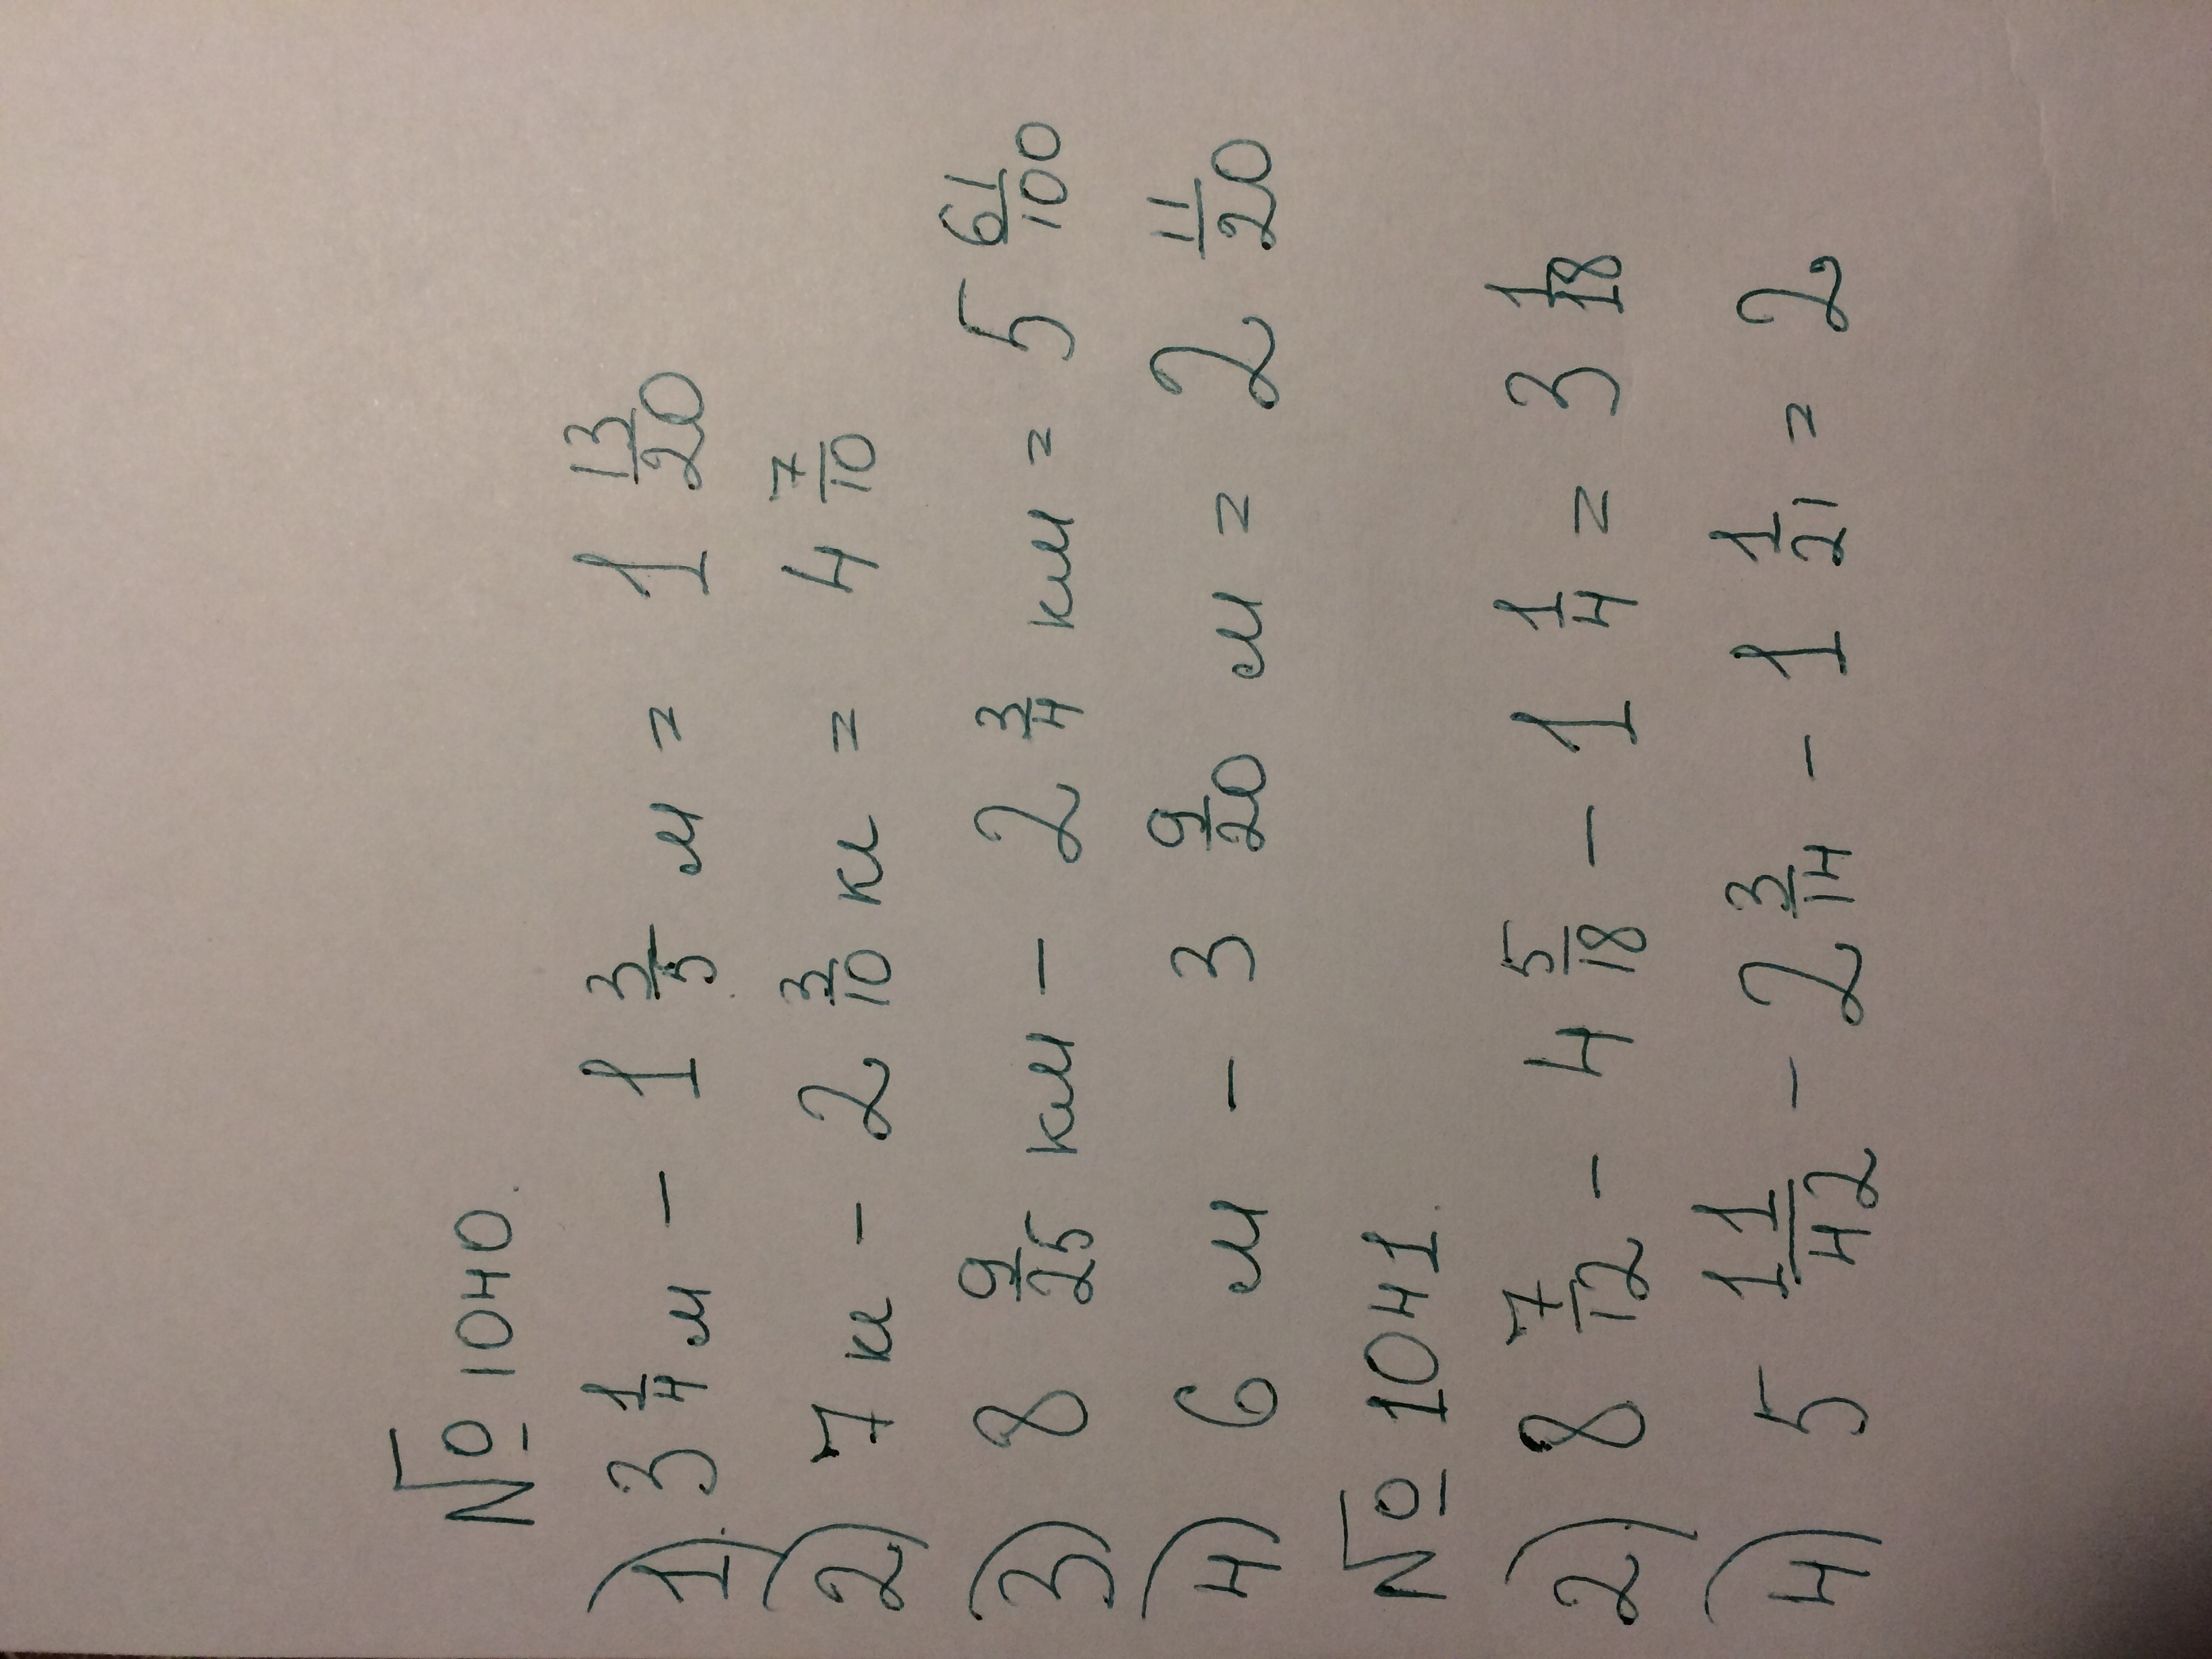 № 1040.
1) 3 1/4 м - 1 3/5 м = 1 13/20
2) 7 кг - 2 3/10 кг = 4 7/10
3) 8 9/25 км - 2 3/4 км = 5 61/100
4) 6 м - 3 9/20 м = 2 11/20
№ 1041.
2) 8 7/12 - 4 5/18 - 1 1/4 = 3 1/18
4) 5 11/42 - 2 3/14 - 1 1/21 = 2